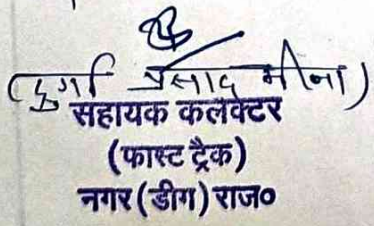 (दुर्गा प्रसाद मीना)
सहायक कलेक्टर
(फास्ट ट्रैक)
नगर (डीग) राज०